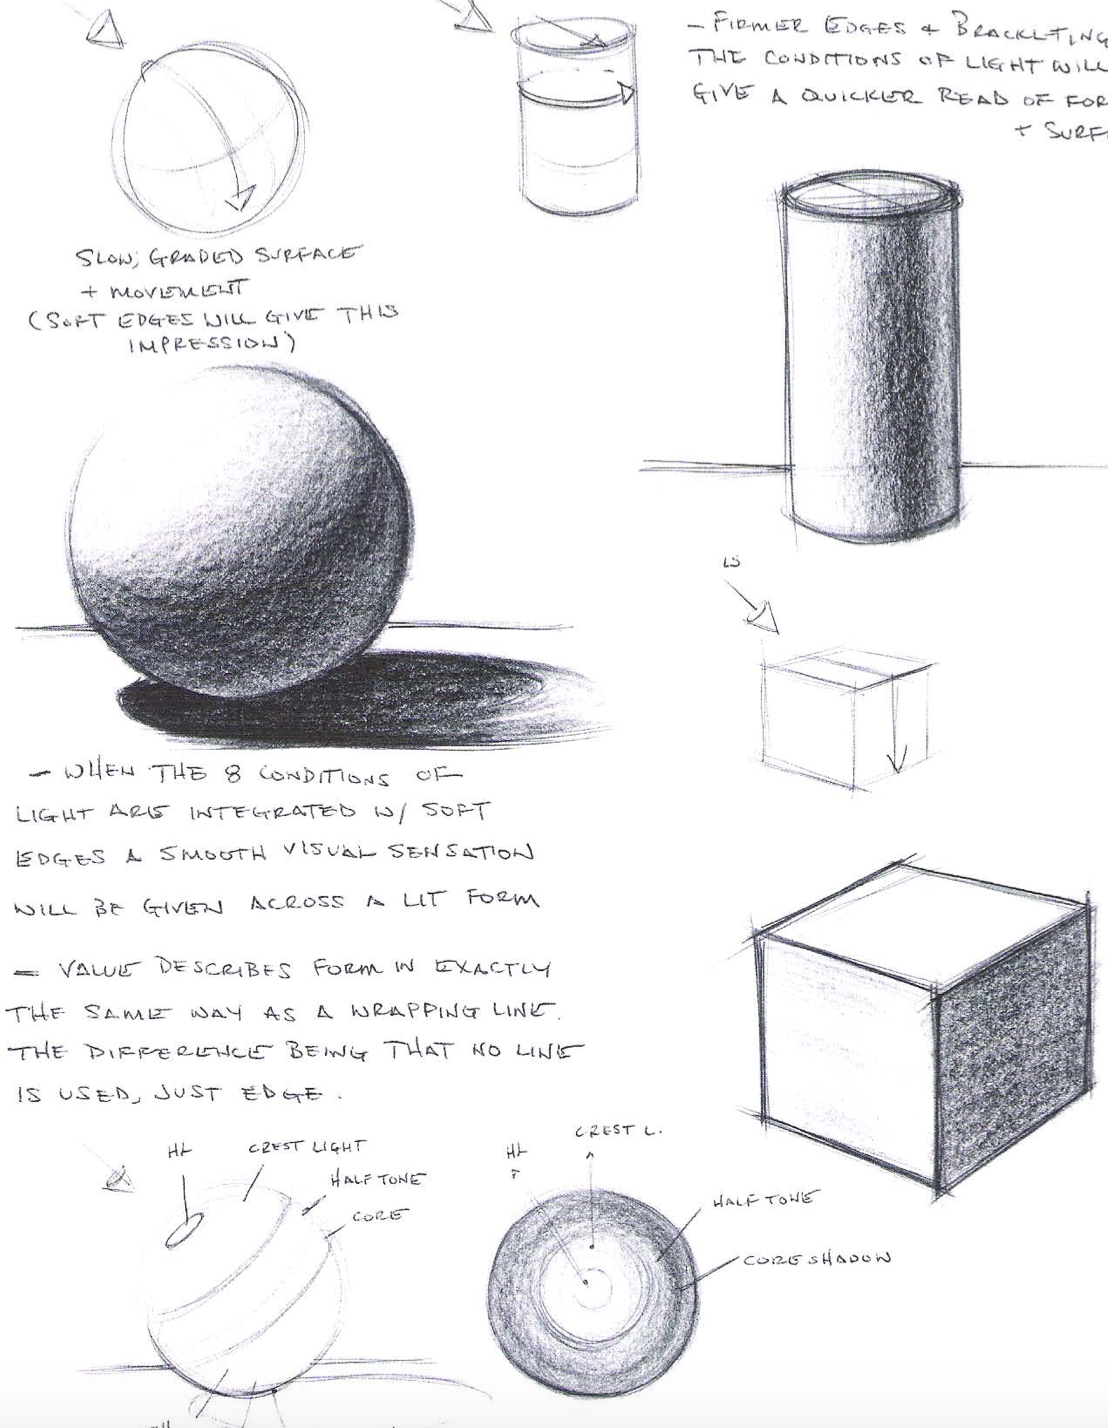 - FIRMER EDGES + BRACKETING
THE CONDITIONS OF LIGHT WILL
GIVE A QUICKER READ OF FOR
+ SURF
SLOW, GRADED SURFACE
+ MOVEMENT
(SOFT EDGES WILL GIVE THIS
IMPRESSION)
LS
- WHEN THE 8 CONDITIONS OF
LIGHT ARE INTEGRATED W/ SOFT
EDGES A SMOOTH VISUAL SENSATION
WILL BE GIVEN ACROSS A LIT FORM
- VALUE DESCRIBES FORM IN EXACTLY
THE SAME WAY AS A WRAPPING LINE.
THE DIFFERENCE BEING THAT NO LINE
IS USED, JUST EDGE.
HL
CREST LIGHT
HALF TONE
CORE
HL
CREST L.
HALF TONE
CORE SHADOW